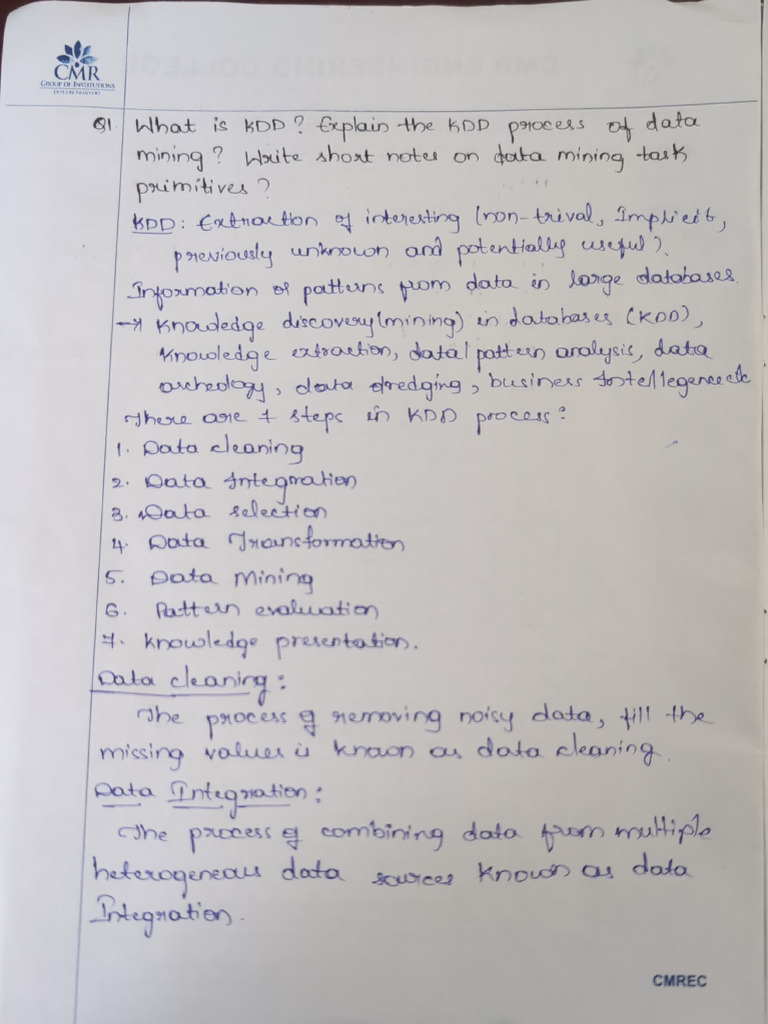 CMR
GROUP OF INSTITUTIONS
EXPLORE TO INVENT
Q1. What is KDD? Explain the KDD process of data
mining? Write short notes on data mining task
primitives?
KDD: Extraction of interesting (non-trival, Implicit,
previously unknown and potentially useful).
Information of patterns from data in large databases.
→ Knowledge discovery(mining) in databases (KDD),
Knowledge extraction, data/pattern analysis, data
archeology, data dredging, business Intellegence etc
There are 7 steps in KDD process:
1. Data cleaning
2. Data Integration
3. Data selection
4. Data Transformation
5. Data Mining
6. Pattern evaluation
7. Knowledge presentation.
Data cleaning:
The process of removing noisy data, fill the
missing values is known as data cleaning.
Data Integration:
The process of combining data from multiple
heterogeneous data sources known as data
Integration.
CMREC